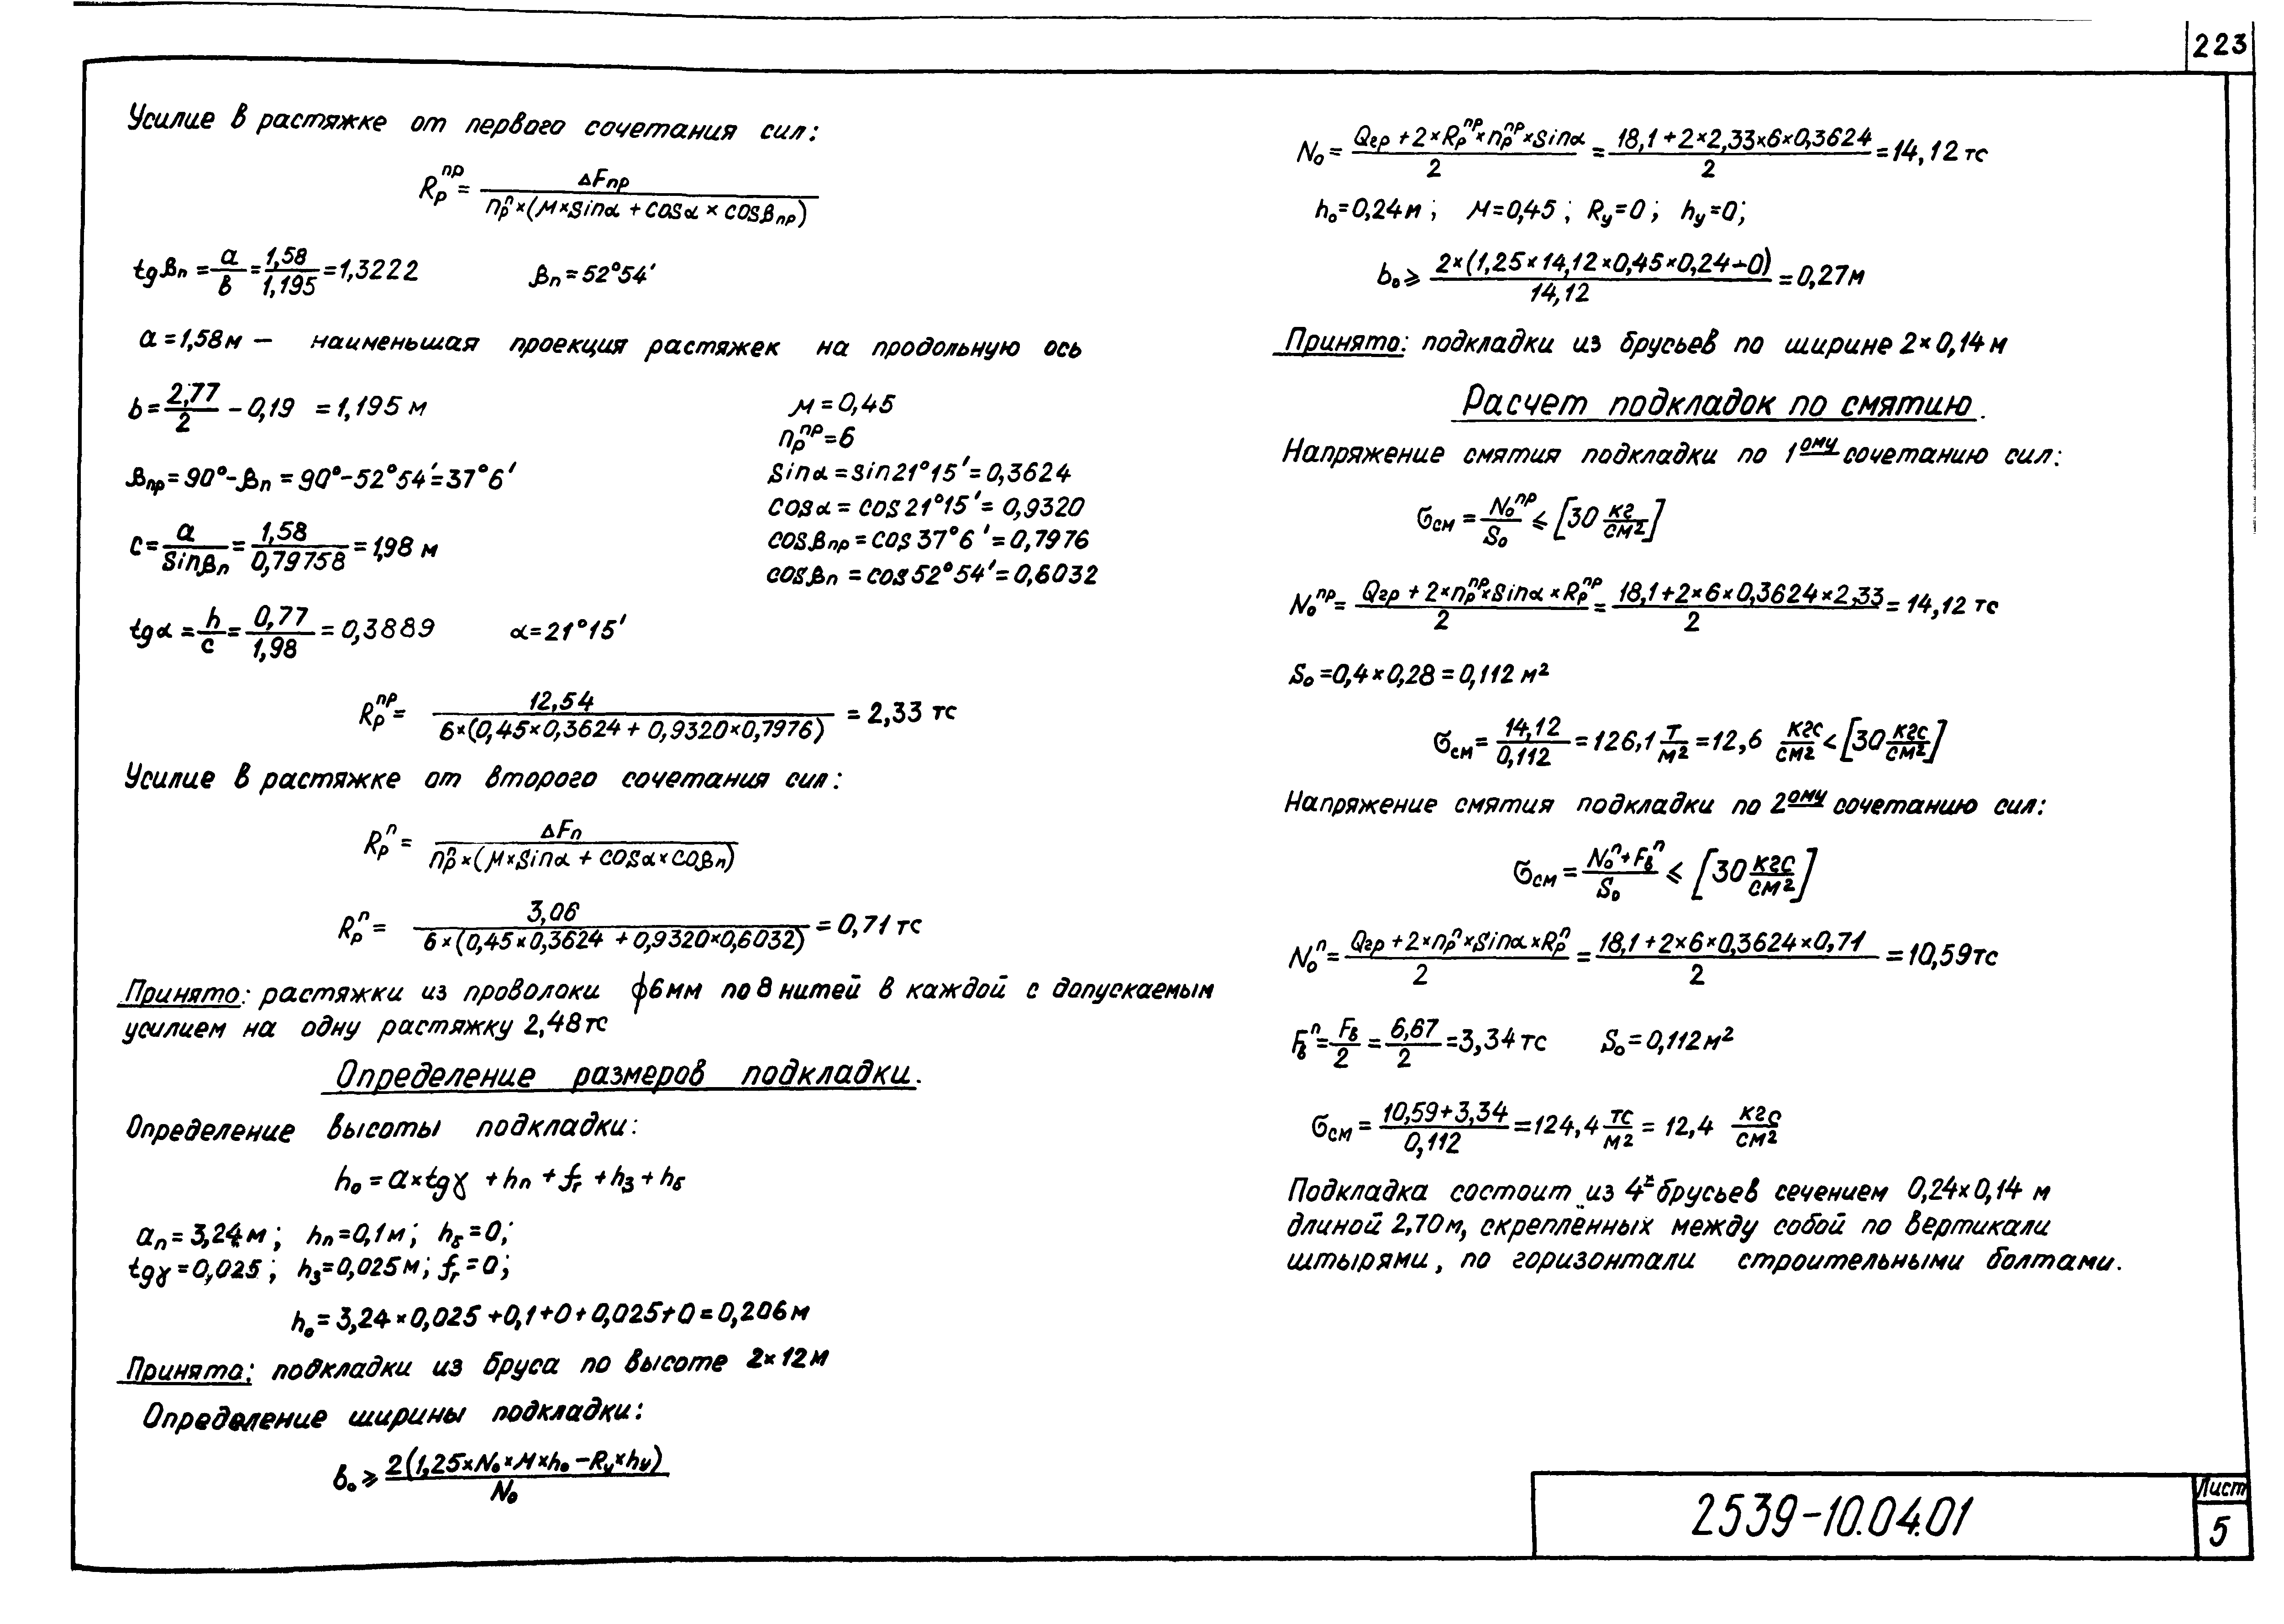 223
Усилие в растяжке от первого сочетания сил:
Rр^пр = ΔFпр / nр^п×(М×sinα + cosα × cosβпр)
tgβп = a/в = 1,58/1,195 = 1,3222 βп = 52°54′
a = 1,58м – наименьшая проекция растяжек на продольную ось
b = 2,77/2 - 0,19 = 1,195 м
βпр = 90°-βп = 90°-52°54′ = 37°6′
c = a/Sinβп = 1,58/0,79758 = 1,98 м
tgα = h/c = 0,77/1,98 = 0,3889 α = 21°15′
М = 0,45
nр^пр = 6
sinα = sin21°15′ = 0,3624
cosα = cos21°15′ = 0,9320
cosβпр = cos37°6′ = 0,7976
cosβп = cos52°54′ = 0,6032
Rр^пр = 12,54 / 6×(0,45×0,3624 + 0,9320×0,7976) = 2,33 тс
Усилие в растяжке от второго сочетания сил:
Rр^п = ΔFп / nр^п×(М×sinα + cosα×соβп)
Rр^п = 3,06 / 6×(0,45×0,3624 + 0,9320×0,6032) = 0,71 тс
Принято: растяжки из проволоки ф6мм по 8 нитей в каждой с допускаемым
усилием на одну растяжку 2,48тс
Определение размеров подкладки.
Определение высоты подкладки:
hо = a×tgγ + hп + fг + hз + hб
aп = 3,24м; hп = 0,1м; hб = 0;
tgγ = 0,025; hз = 0,025м; fг = 0;
hо = 3,24×0,025 + 0,1 + 0 + 0,025 + 0 = 0,206м
Принято: подкладки из бруса по высоте 2×12м
Определение ширины подкладки:
bо ⩾ 2(1,25×Nо×М×hо - Rу×hу) / Nо
Nо = Qгр + 2×Rр^пр×nр^пр×sinα / 2 = 18,1 + 2×2,33×6×0,3624 / 2 = 14,12 тс
hо = 0,24м; М = 0,45; Rу = 0; hу = 0;
bо ⩾ 2×(1,25×14,12×0,45×0,24-0) / 14,12 = 0,27м
Принято: подкладки из брусьев по ширине 2×0,14м
Расчет подкладок по смятию.
Напряжение смятия подкладки по 1ому сочетанию сил:
σсм = Nо^пр / Sо ⩽ [30 кг/см²]
Nо^пр = Qгр + 2×nр^пр×Sinα×Rр^пр / 2 = 18,1 + 2×6×0,3624×2,33 / 2 = 14,12 тс
Sо = 0,4×0,28 = 0,112 м²
σсм = 14,12/0,112 = 126,1 т/м² = 12,6 кгс/см² < [30 кгс/см²]
Напряжение смятия подкладки по 2ому сочетанию сил:
σсм = Nо^п + Fв^п / Sо ⩽ [30 кгс/см²]
Nо^п = Qгр + 2×nр^п×Sinα×Rр^п / 2 = 18,1 + 2×6×0,3624×0,71 / 2 = 10,59тс
Fв^п = Fв/2 = 6,67/2 = 3,34 тс Sо = 0,112м²
σсм = 10,59+3,34 / 0,112 = 124,4 тс/м² = 12,4 кгс/см²
Подкладка состоит из 4х брусьев сечением 0,24×0,14 м
длиной 2,70м, скреплённых между собой по вертикали
штырями, по горизонтали строительными болтами.
2539-10.04.01
Лист
5